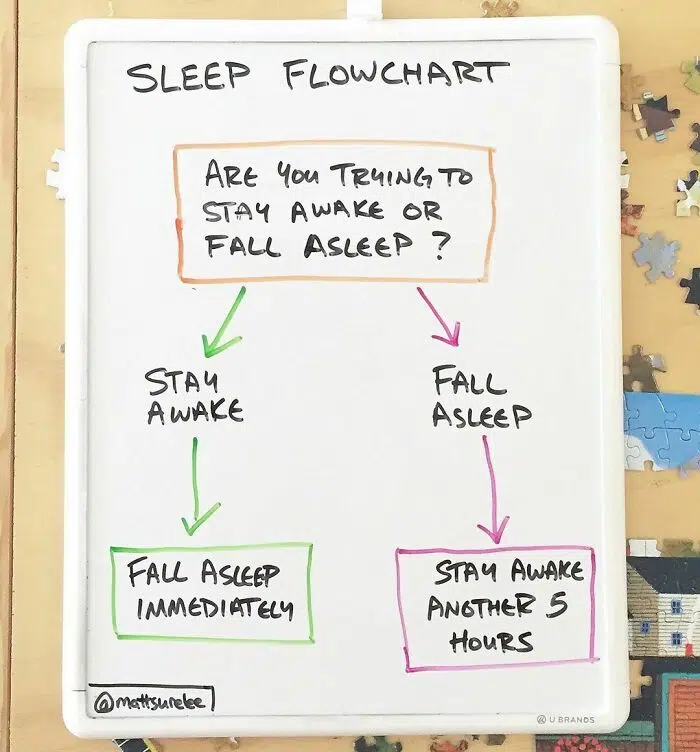 SLEEP FLOWCHART
ARE YOU TRYING TO
STAY AWAKE OR
FALL ASLEEP ?
STAY
AWAKE
FALL
ASLEEP
FALL ASLEEP
IMMEDIATELY
STAY AWAKE
ANOTHER 5
HOURS
@mattsurelee
U BRANDS